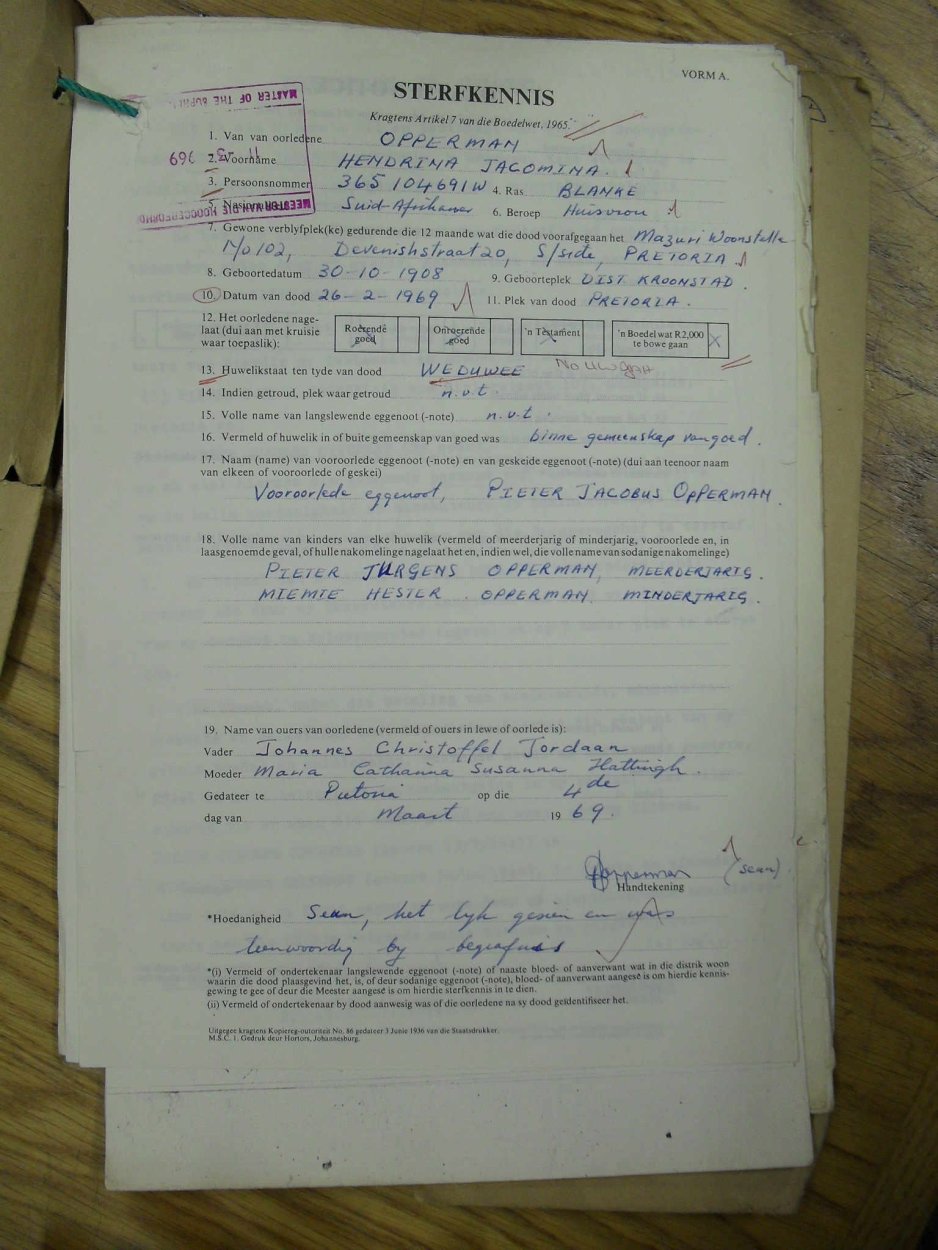 VORM A.
STERFKENNIS
Kragtens Artikel 7 van die Boedelwet, 1965.
MASTER OF THE
1. Van van oorledene OPPERMAN
2. Voorname HENDRINA JACOMINA.
3. Persoonsnommer 365104691W 4. Ras BLANKE
5. Suid-Afrikaner 6. Beroep Huisvrou
MEESTER VAN DIE
7. Gewone verblyfplek(ke) gedurende die 12 maande wat die dood voorafgegaan het Mazuri Woonstelle
No 102, Devenishstraat 20, S/side, PRETORIA
8. Geboortedatum 30-10-1908 9. Geboorteplek DIST KROONSTAD.
10. Datum van dood 26-2-1969 11. Plek van dood PRETORIA.
12. Het oorledene nage-
laat (dui aan met kruisie
waar toepaslik):
Roerende
goed
Onroerende
goed
'n Testament
'n Boedel wat R2,000
te bowe gaan X
13. Huwelikstaat ten tyde van dood WEDUWEE
14. Indien getroud, plek waar getroud n.v.t.
15. Volle name van langslewende eggenoot (-note) n.v.t.
16. Vermeld of huwelik in of buite gemeenskap van goed was binne gemeenskap van goed.
17. Naam (name) van vooroorlede eggenoot (-note) en van geskeide eggenoot (-note) (dui aan teenoor naam
van elkeen of vooroorlede of geskei)
Vooroorlede eggenoot, PIETER JACOBUS OPPERMAN
18. Volle name van kinders van elke huwelik (vermeld of meerderjarig of minderjarig, vooroorlede en, in
laasgenoemde geval, of hulle nakomelinge nagelaat het en, indien wel, die volle name van sodanige nakomelinge)
PIETER JURGENS OPPERMAN, MEERDERJARIG.
MIEMIE HESTER OPPERMAN MINDERJARIG.
19. Name van ouers van oorledene (vermeld of ouers in lewe of oorlede is):
Vader Johannes Christoffel Jordaan
Moeder Maria Catharina Susanna Hattingh.
Gedateer te Pretoria op die 4de
dag van Maart 1969.
Opperman (seun)
Handtekening
*Hoedanigheid Seun, het lyk gesien en was
teenwoordig by begrafnis
*(i) Vermeld of ondertekenaar langslewende eggenoot (-note) of naaste bloed- of aanverwant wat in die distrik woon
waarin die dood plaasgevind het, is, of deur sodanige eggenoot (-note), bloed- of aanverwant aangesê is om hierdie kennis-
gewing te gee of deur die Meester aangesê is om hierdie sterfkennis in te dien.
(ii) Vermeld of ondertekenaar by dood aanwesig was of die oorledene na sy dood geïdentifiseer het.
Uitgegee kragtens Kopiereg-outoriteit No. 86 gedateer 3 Junie 1936 van die Staatsdrukker.
M.S.C. 1. Gedruk deur Hortors, Johannesburg.